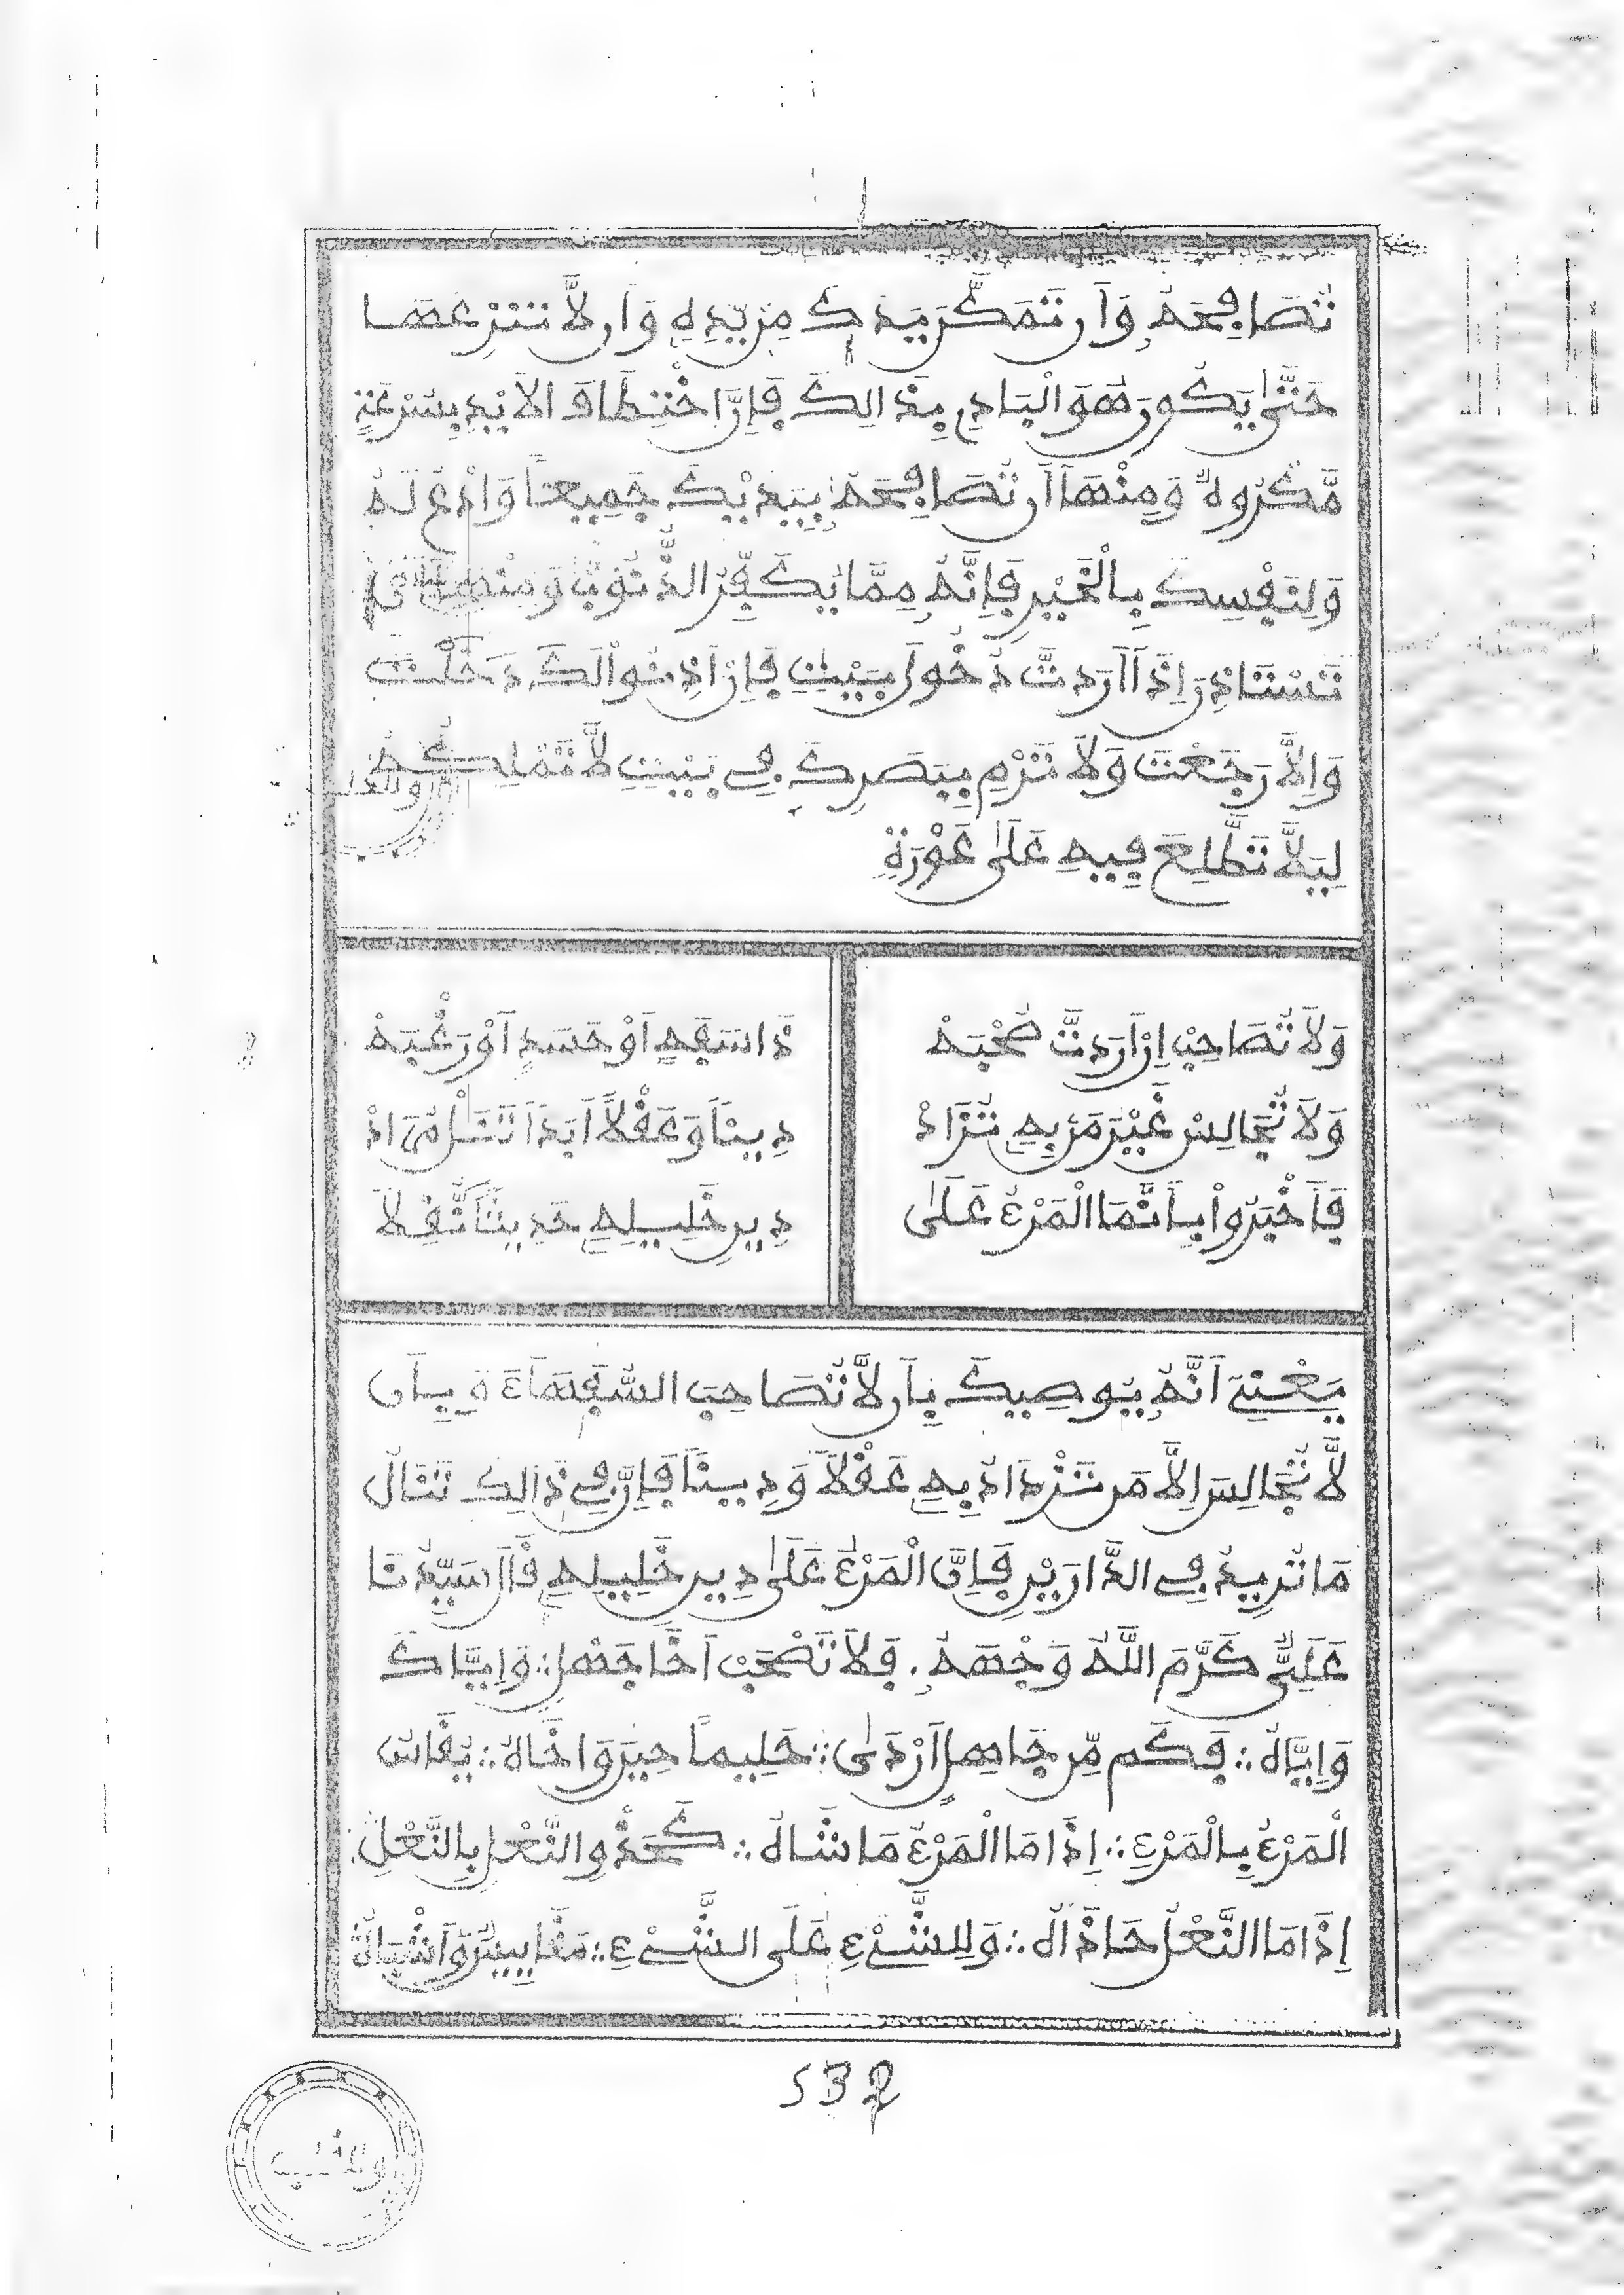 تُصَافِحَهُ وَأَن تُمَكِّنَ يَدَكَ مِن يَّدِهِ وَأَن لَّا تَنْزِعَهَا
حَتَّىٰ يَكُونَ هُوَ الْبَادِي بِذَالِكَ فَإِنَّ اخْتِطَافَ الَايْدِي بِسُرْعَةٍ
مَّكْرُوهٌ وَمِنْهَا أَن تُصَافِحَهُ بِيَدَيْكَ جَمِيعاً وَادْعُ لَهُ
وَلِنَفْسِكَ بِالْخَيْرِ فَإِنَّهُ مِمَّا يُكَفِّرُ الذُّنُوبَ وَمِنْهَا أَن
تَسْتَاذِنَ إِذَا أَرَدتَّ دُخُولَ بَيْتٍ فَإِنْ أَذِنُواْ لَكَ دَخَلْتَ
وَإِلَّا رَجَعْتَ وَلَا تَرْمِ بِبَصَرِكَ فِي بَيْتٍ لَّا تَمْلِكُهُ
لِيَلَّا تَطَّلِعَ فِيهِ عَلَىٰ عَوْرَةٍ
وَلَا تُصَاحِبْ إِنْ أَرَدتَّ صُحْبَهْ ذَا سَفَهٍ أَوْ حَسَدٍ أَوْ رَغْبَهْ
وَلَا تُجَالِسْ غَيْرَ مَن بِهِ تُزَادْ دِيناً وَعَقْلاً أَبَداً تَنَلْ مُرَادْ
فَأَخْبَرُواْ بِأَنَّمَا الْمَرْءُ عَلَىٰ دِينِ خَلِيلِهِ حَدِيثاً نُّقِلَا
يَعْنِي أَنَّهُ يُوصِيكَ بِأَن لَّا تُصَاحِبَ السُّفَهَاءَ وَبِأَن
لَّا تُجَالِسَ إِلَّا مَن تَزْدَادُ بِهِ عَقْلاً وَدِيناً فَإِنَّ فِي ذَالِكَ تَنَالُ
مَا تُرِيدُ فِي الدَّارَيْنِ فَإِنَّ الْمَرْءَ عَلَىٰ دِينِ خَلِيلِهِ قَالَ سَيِّدُنَا
عَلِيٌّ كَرَّمَ اللَّهُ وَجْهَهُ. فَلَا تَصْحَبْ أَخَا جَهْلٍ ∴ وَإِيَّاكَ
وَإِيَّاهُ ∴ فَكَم مِّن جَاهِلٍ أَرْدَىٰ ∴ حَلِيماً حِينَ وَاخَاهُ ∴ يُقَاسُ
الْمَرْءُ بِالْمَرْءِ ∴ إِذَا مَا الْمَرْءُ مَا شَاهُ ∴ كَحَذْوِ النَّعْلِ بِالنَّعْلِ
إِذَا مَا النَّعْلُ حَاذَاهُ ∴ وَلِلشَّيْءِ عَلَى الشَّيْءِ ∴ مَقَايِيسٌ وَأَشْبَاهُ
532